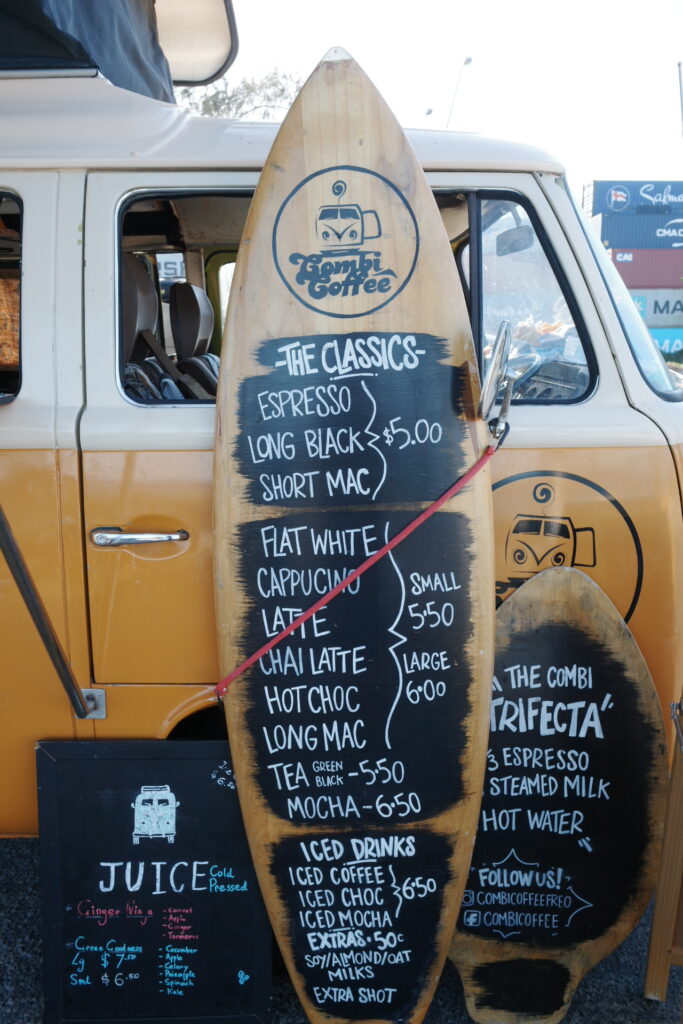 Combi
Coffee
-THE CLASSICS-
ESPRESSO
LONG BLACK
SHORT MAC
$5.00
FLAT WHITE
CAPPUCINO
LATTE
CHAI LATTE
HOT CHOC
LONG MAC
SMALL
5.50
LARGE
6.00
TEA GREEN BLACK -5.50
MOCHA-6.50
ICED DRINKS
ICED COFFEE
ICED CHOC
ICED MOCHA
6.50
EXTRAS • 50c
SOY/ALMOND/OAT
MILKS
EXTRA SHOT
JUICE Cold Pressed
Ginger Ninja
- Carrot
- Apple
- Ginger
- Turmeric
Green Goodness
Lg $ 7.50
Sml $ 6.50
- Cucumber
- Apple
- Celery
- Pineapple
- Spinach
- Kale
THE COMBI
TRIFECTA"
3 ESPRESSO
STEAMED MILK
HOT WATER
FOLLOW US!
COMBICOFFEEFREO
COMBICOFFEE
CMA
CAI
MA
MA